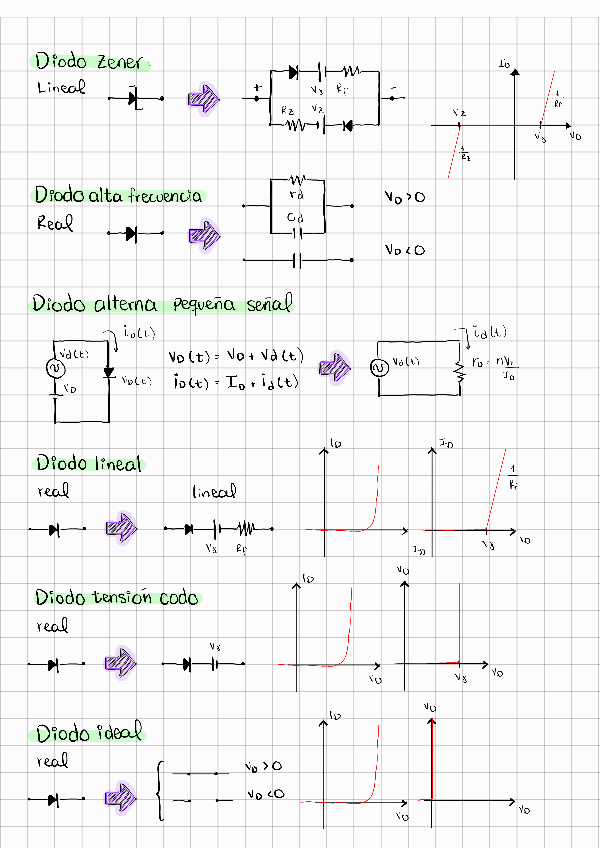 Diodo Zener
Lineal
+
Vγ Rf
-
Rz Vz
ID
1/Rf
Vz
Vγ VD
1/Rz
Diodo alta frecuencia
Real
rd
Cd
VD>0
VD<0
Diodo alterna pequeña señal
iD(t)
Vd(t)
VD
VD(t)
VD(t) = VD + Vd(t)
iD(t) = ID + id(t)
id(t)
Vd(t)
Diodo lineal
real
lineal
Vγ Rf
ID
VD
ID
1/Rf
ID
Vγ VD
Diodo tensión codo
real
Vγ
ID
VD
VD
Vγ VD
Diodo ideal
real
VD>0
VD<0
ID
VD
VD
VD